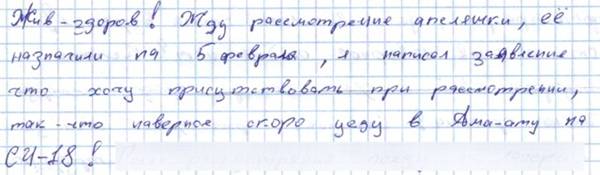 Жив-здоров! Жду рассмотрение апеляшки, её
назначили на 5 февраля, я написал заявление
что хочу присутствовать при рассмотрении,
так-что наверное скоро уеду в Алма-ату на
СИ-18!